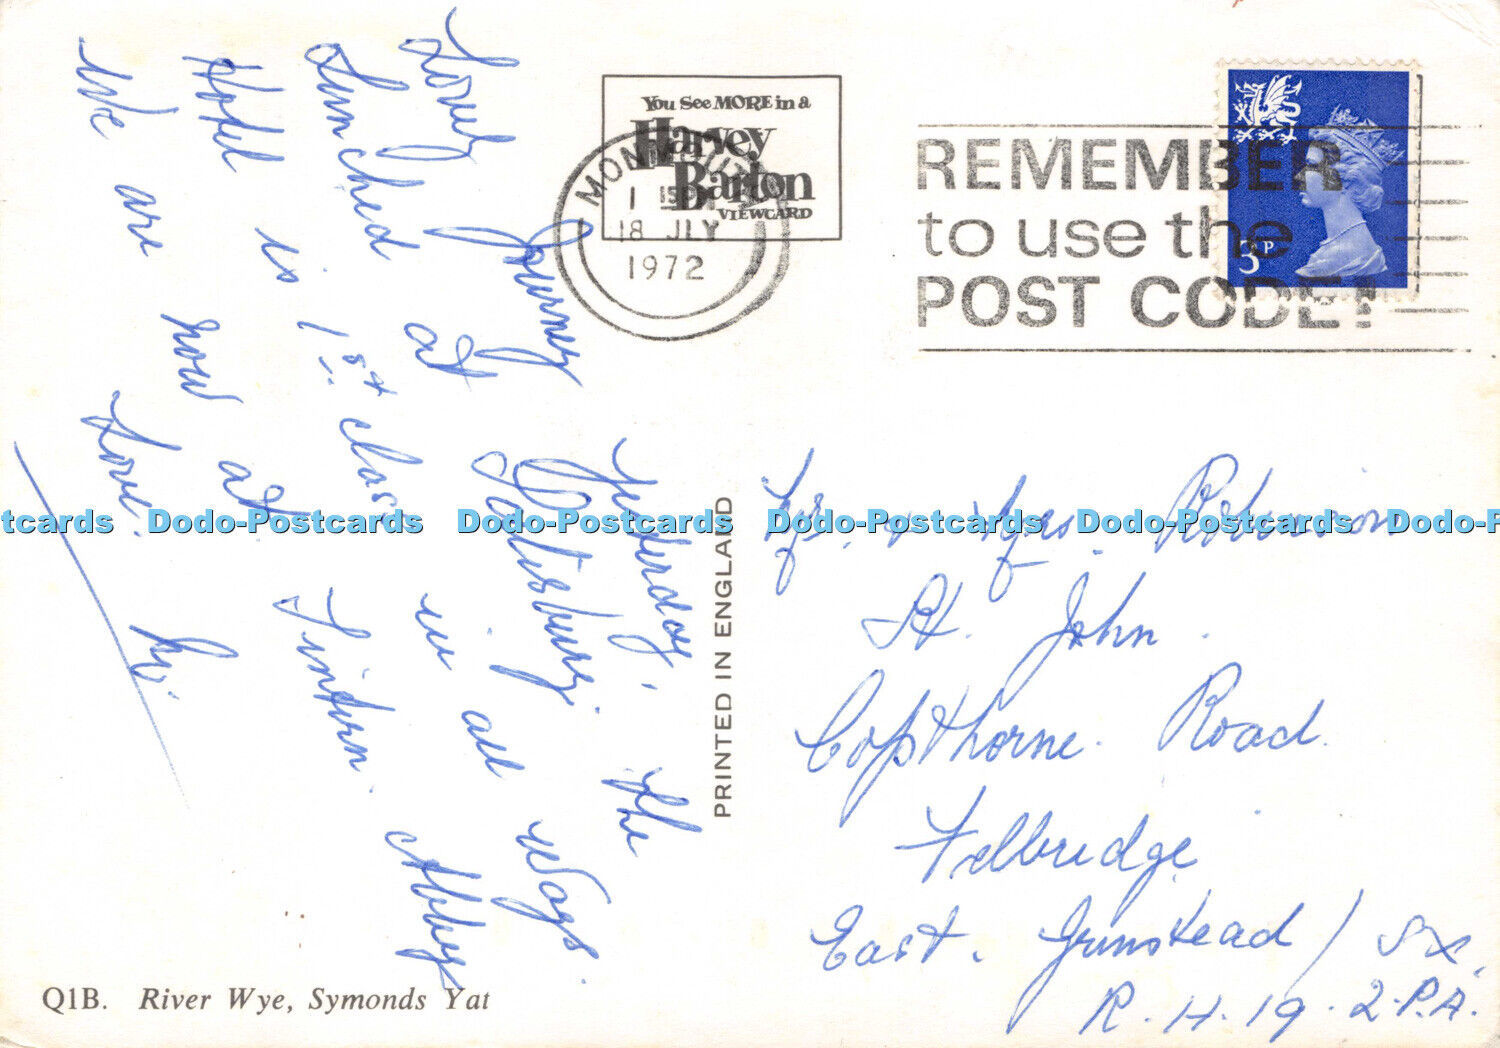 Lovely Journey yesterday. The
Lunched at Salisbury.
Hotel is 1st class in all ways.
We are now at Tintern Abbey
Love.
You See MORE in a
Harvey
Barton
VIEWCARD
18 JLY
1972
REMEMBER
to use the
POST CODE!
3P
PRINTED IN ENGLAND
& Robinson
St. John.
Copthorne. Road.
Felbridge
East. Grinstead / Sx.
R.H.19.2.P.A.
Q1B. River Wye, Symonds Yat
tcards Dodo-Postcards Dodo-Postcards Dodo-Postcards Dodo-Postcards Dodo-P